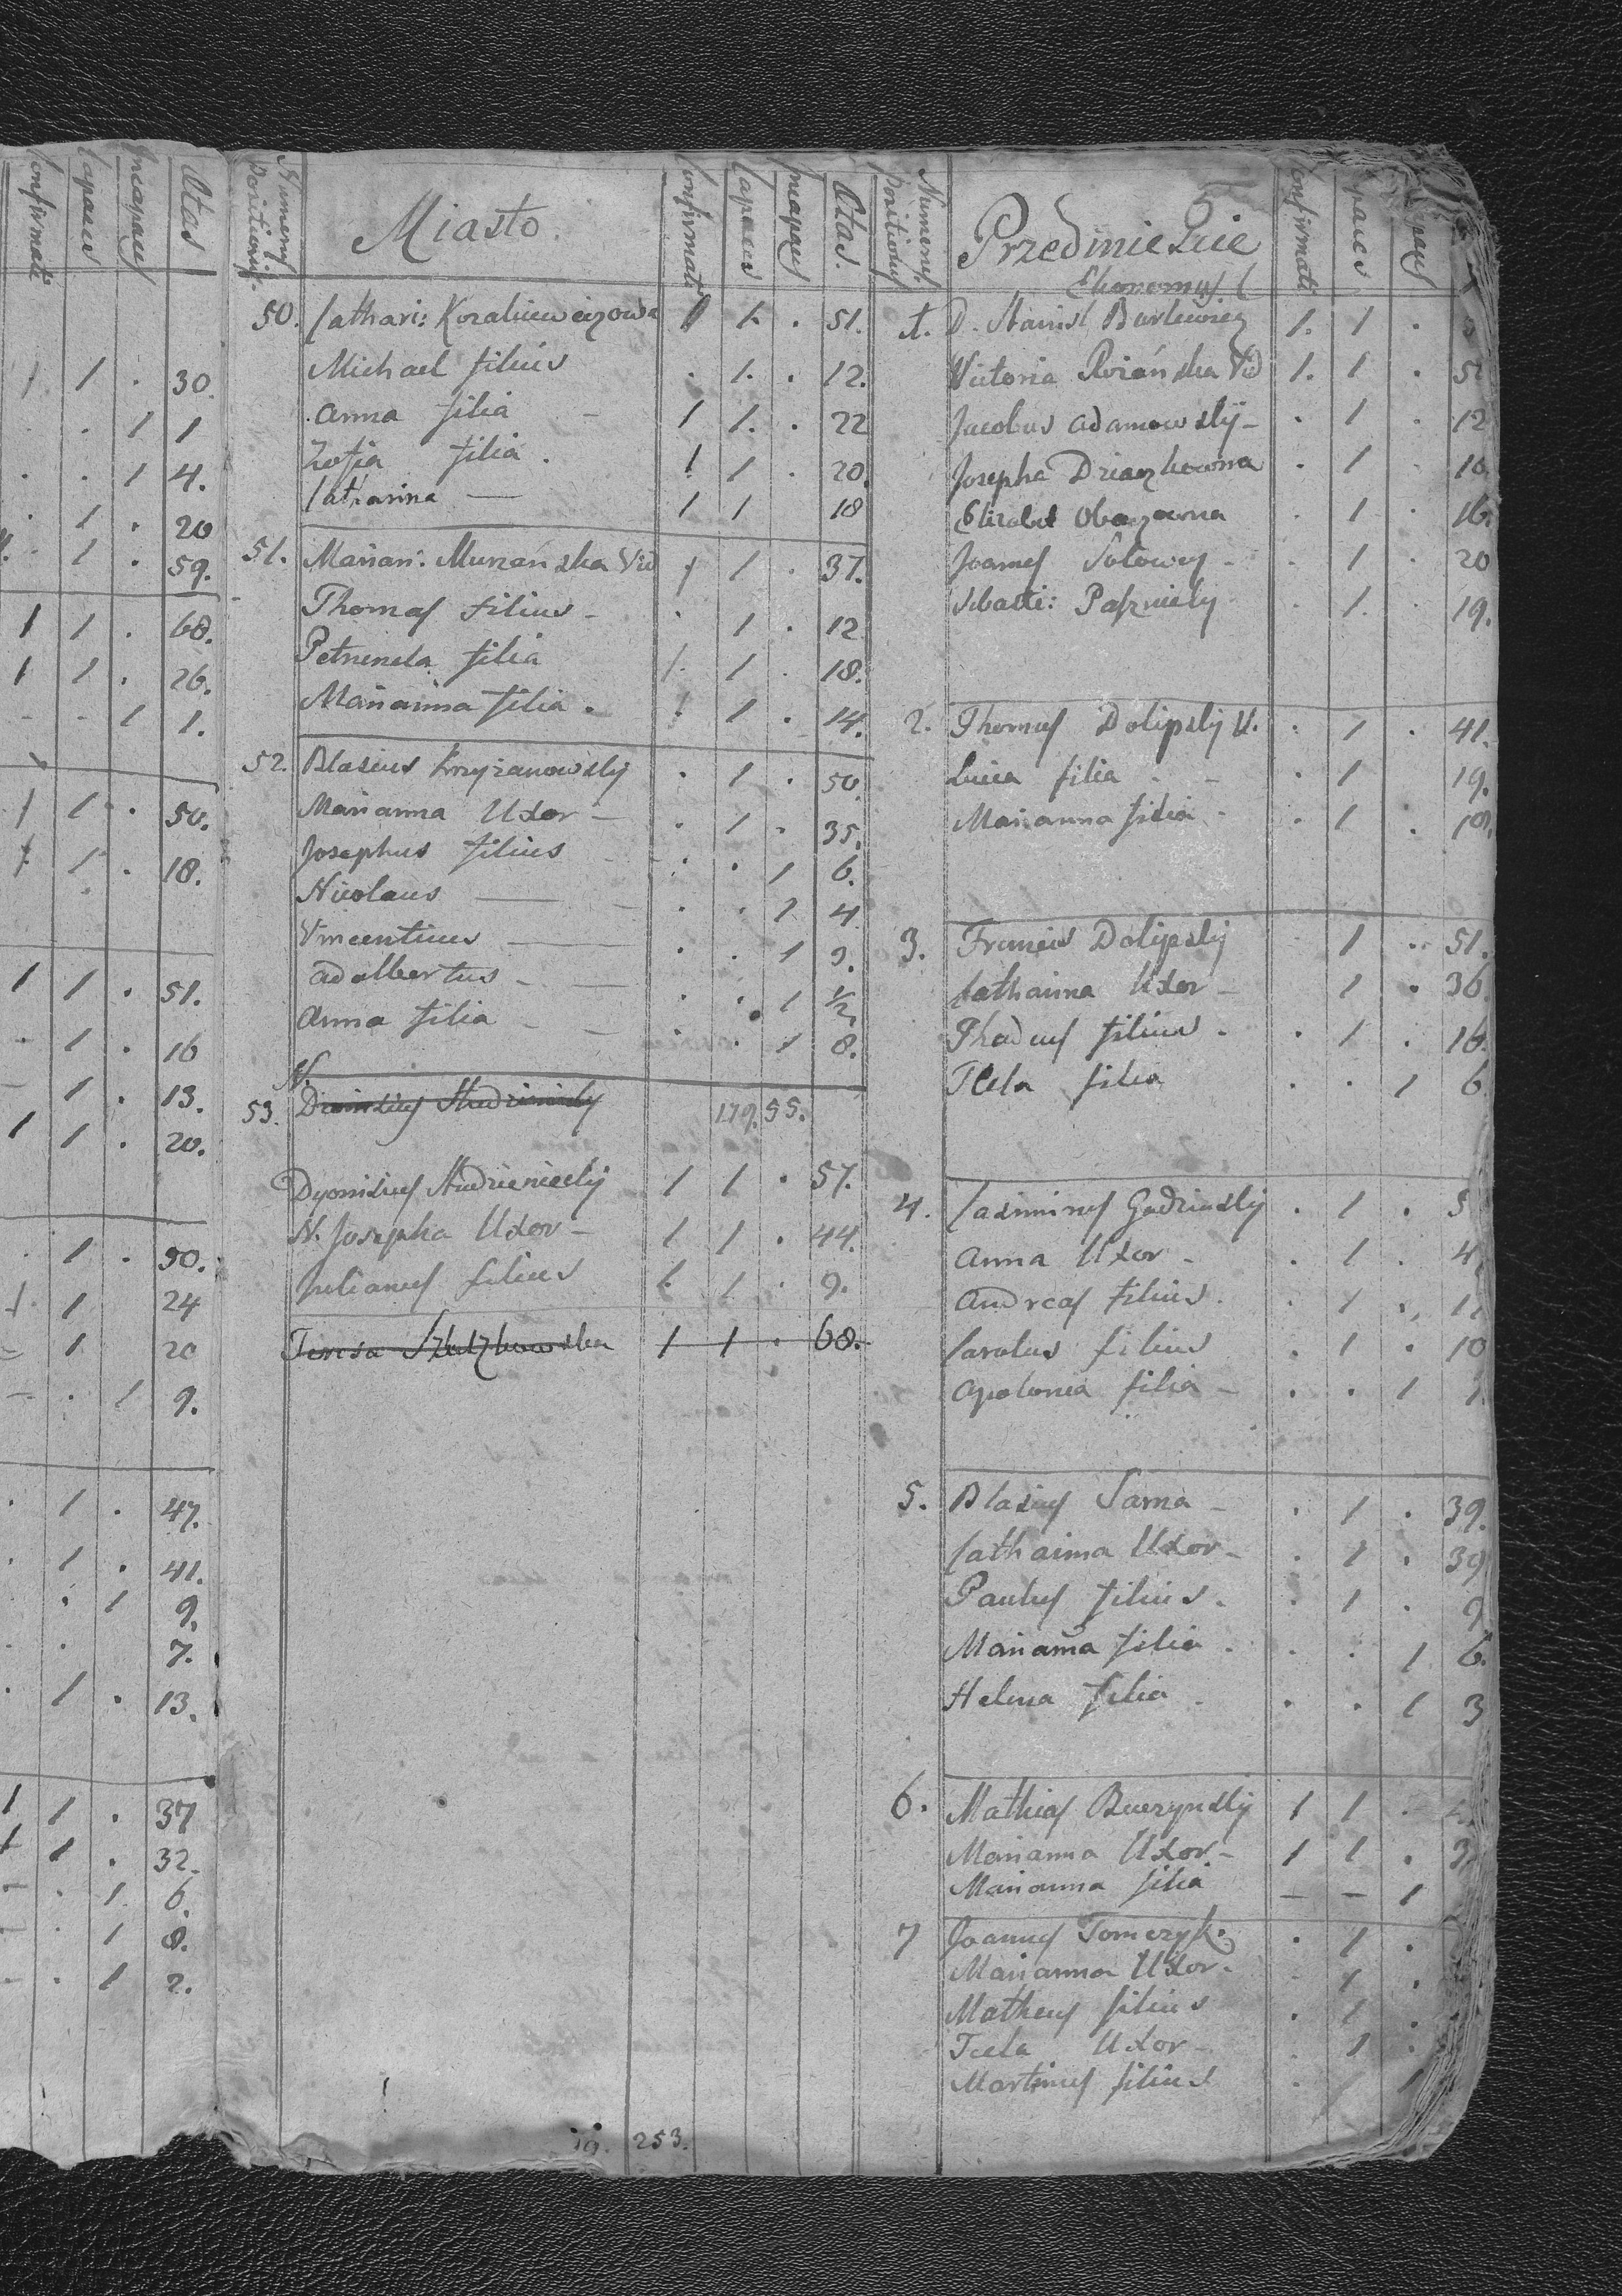 Confirmati Capaces Incapaces Ætas
1 1 . 30.
. . 1 1
. . 1 4.
. 1 . 20
. 1 . 59.
1 1 . 68.
1 1 . 26.
- . 1 1.
1 1 . 50.
1 1 . 18.
1 1 . 51.
- 1 . 16
- 1 . 13.
1 1 . 20.
. 1 . 50.
1. 1 24
- 1 20
- . 1 9.
. 1 . 47.
. 1 . 41.
. 1 9.
. . 7.
. 1 . 13.
1 1 . 37
1 1 . 32.
- . 1. 6.
- . 1 8.
- . 1 2.
Numerus Positionis Miasto. Confirmati Capaces Incapaces Ætas.
50. Cathari: Koralewiczowa 1 1. . 51.
Michael filius . 1. . 12.
Anna filia - 1 1. . 22
Zofia filia . 1 1 . 20.
Catharina — 1 1 18
51. Marian: Murzańska Vid 1 1 . 37.
Thomas filius - . 1 . 12
Petronela filia 1. 1 . 18.
Marianna filia . 1 1 . 14.
52. Blasius Krzyżanowsky . 1 . 50.
Marianna Uxor - . 1 . 35.
Josephus filius - . . 1 6.
Nicolaus — . . 1 4
Vincentius — . . 1 3.
Adalbertus - — . . 1 1/2
Anna filia - - . . 1 8.
N.
53. 179. 55.
Dyonisius Studzieniecky 1 1 . 57.
N. Josepha Uxor - 1 1 . 44.
Julianus filius 1 1 . 9.
Teresa 1 1 . 68.
19. 253.
Numerus Positionis Przedmieście Confirmati
5
Ekonomus
1. D. Stanisl Burkewicz 1. 1 .
Victoria Rożańska Vid 1. 1 . 5
Jacobus Adamowsky - . 1 . 12
Josepha Dziaczkowna . 1 . 10.
Elizabet Obaczowna . 1 . 16.
Joannes Sotowy - . 1 . 20
Sebasti: . 1. . 19.
2. Thomas Dolipsky V. . 1 . 41.
Lucia filia - . 1 19.
Marianna filia - . 1 . 10.
3. Francis Dolipsky . 1 . 51.
Catharina Uxor - 1 . 36.
Thadeus filius . . 1 . 16.
Tecla filia . . 1 6.
4. Casimirus Gadzinsky . 1 . 5
Anna Uxor - . 1 . 4
Andreas filius . . 1 . 1
Carolus filius . 1 . 10
Apolonia filia - . . 1
5. Blasius Sarna - . 1 . 39.
Catharina Uxor - . 1 . 39
Paulus filius . . 1 . 9
Marianna filia . . . 1 6.
Helena filia . . . 1 3
6. Mathias Buczynsky 1 1 .
Marianna Uxor - 1 1 . 3
Marianna filia - - 1
7 Joannes Tomczyk. . 1 .
Marianna Uxor - . 1 .
Matheus filius . 1 .
Tecla Uxor - . 1 .
Martinus filius . 1